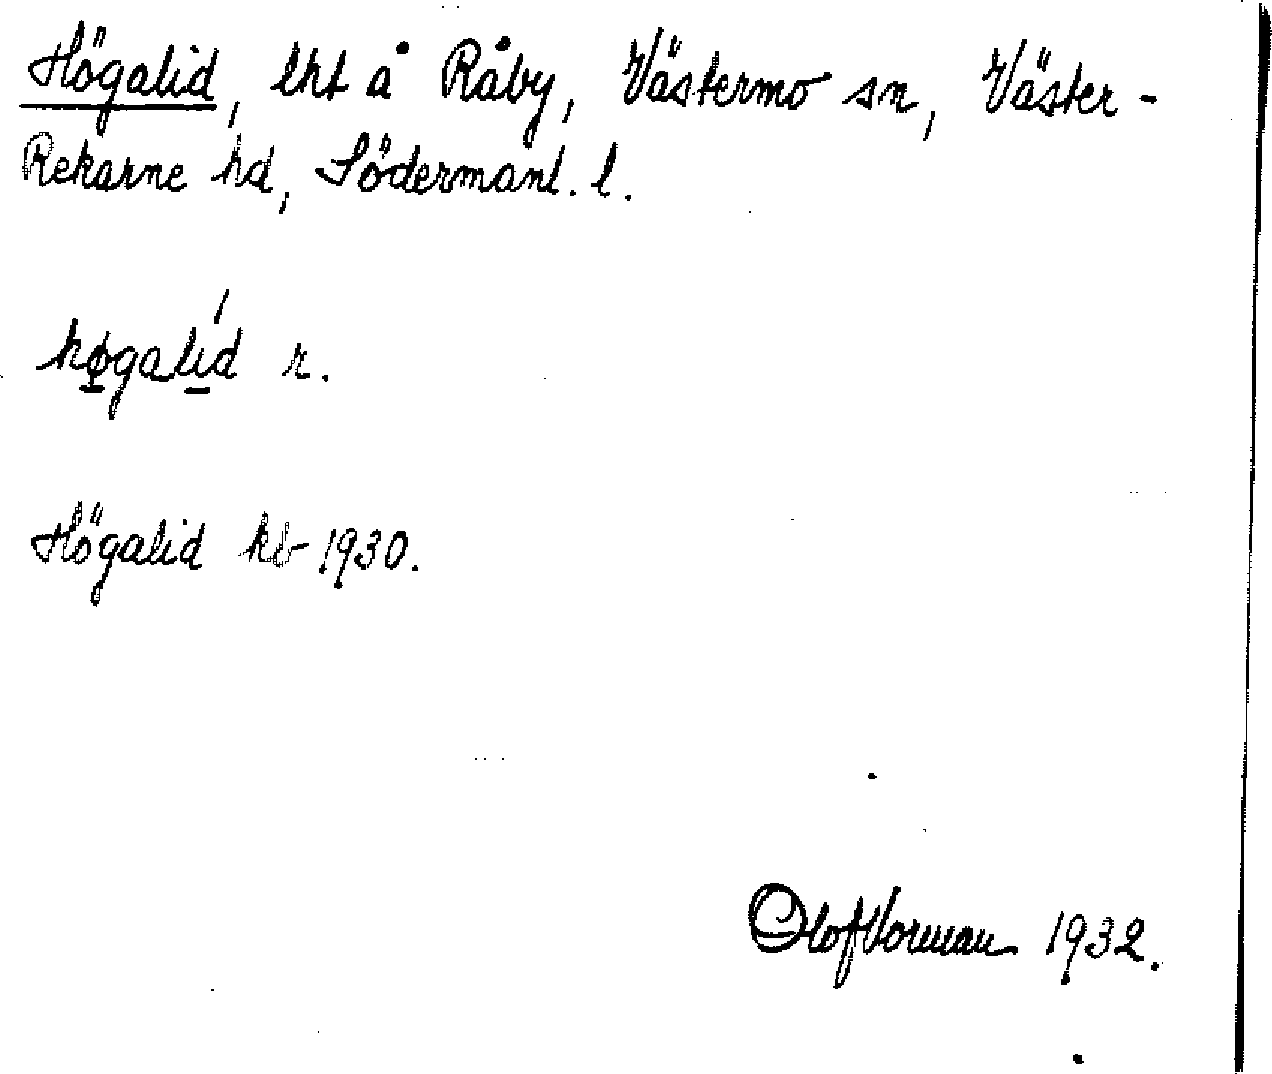 Högalid, lht å Råby, Västermo sn, Väster-
Rekarne hd, Södermanl. l.
høgalíd r.
Högalid kb 1930.
Olof Vorman 1932.